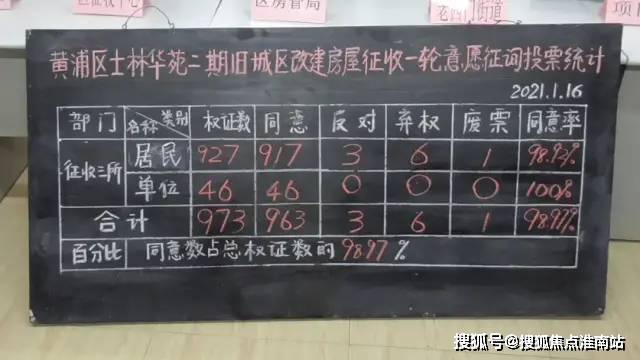 区房管局
老西门街道
黄浦区士林华苑二期旧城区改建房屋征收一轮意愿征询投票统计
2021.1.16
部门 名称 类别 权证数 同意 反对 弃权 废票 同意率
征收三所 居民 927 917 3 6 1 98.92%
单位 46 46 0 0 0 100%
合计 973 963 3 6 1 98.97%
百分比 同意数占总权证数的98.97%
搜狐号@搜狐焦点淮南站